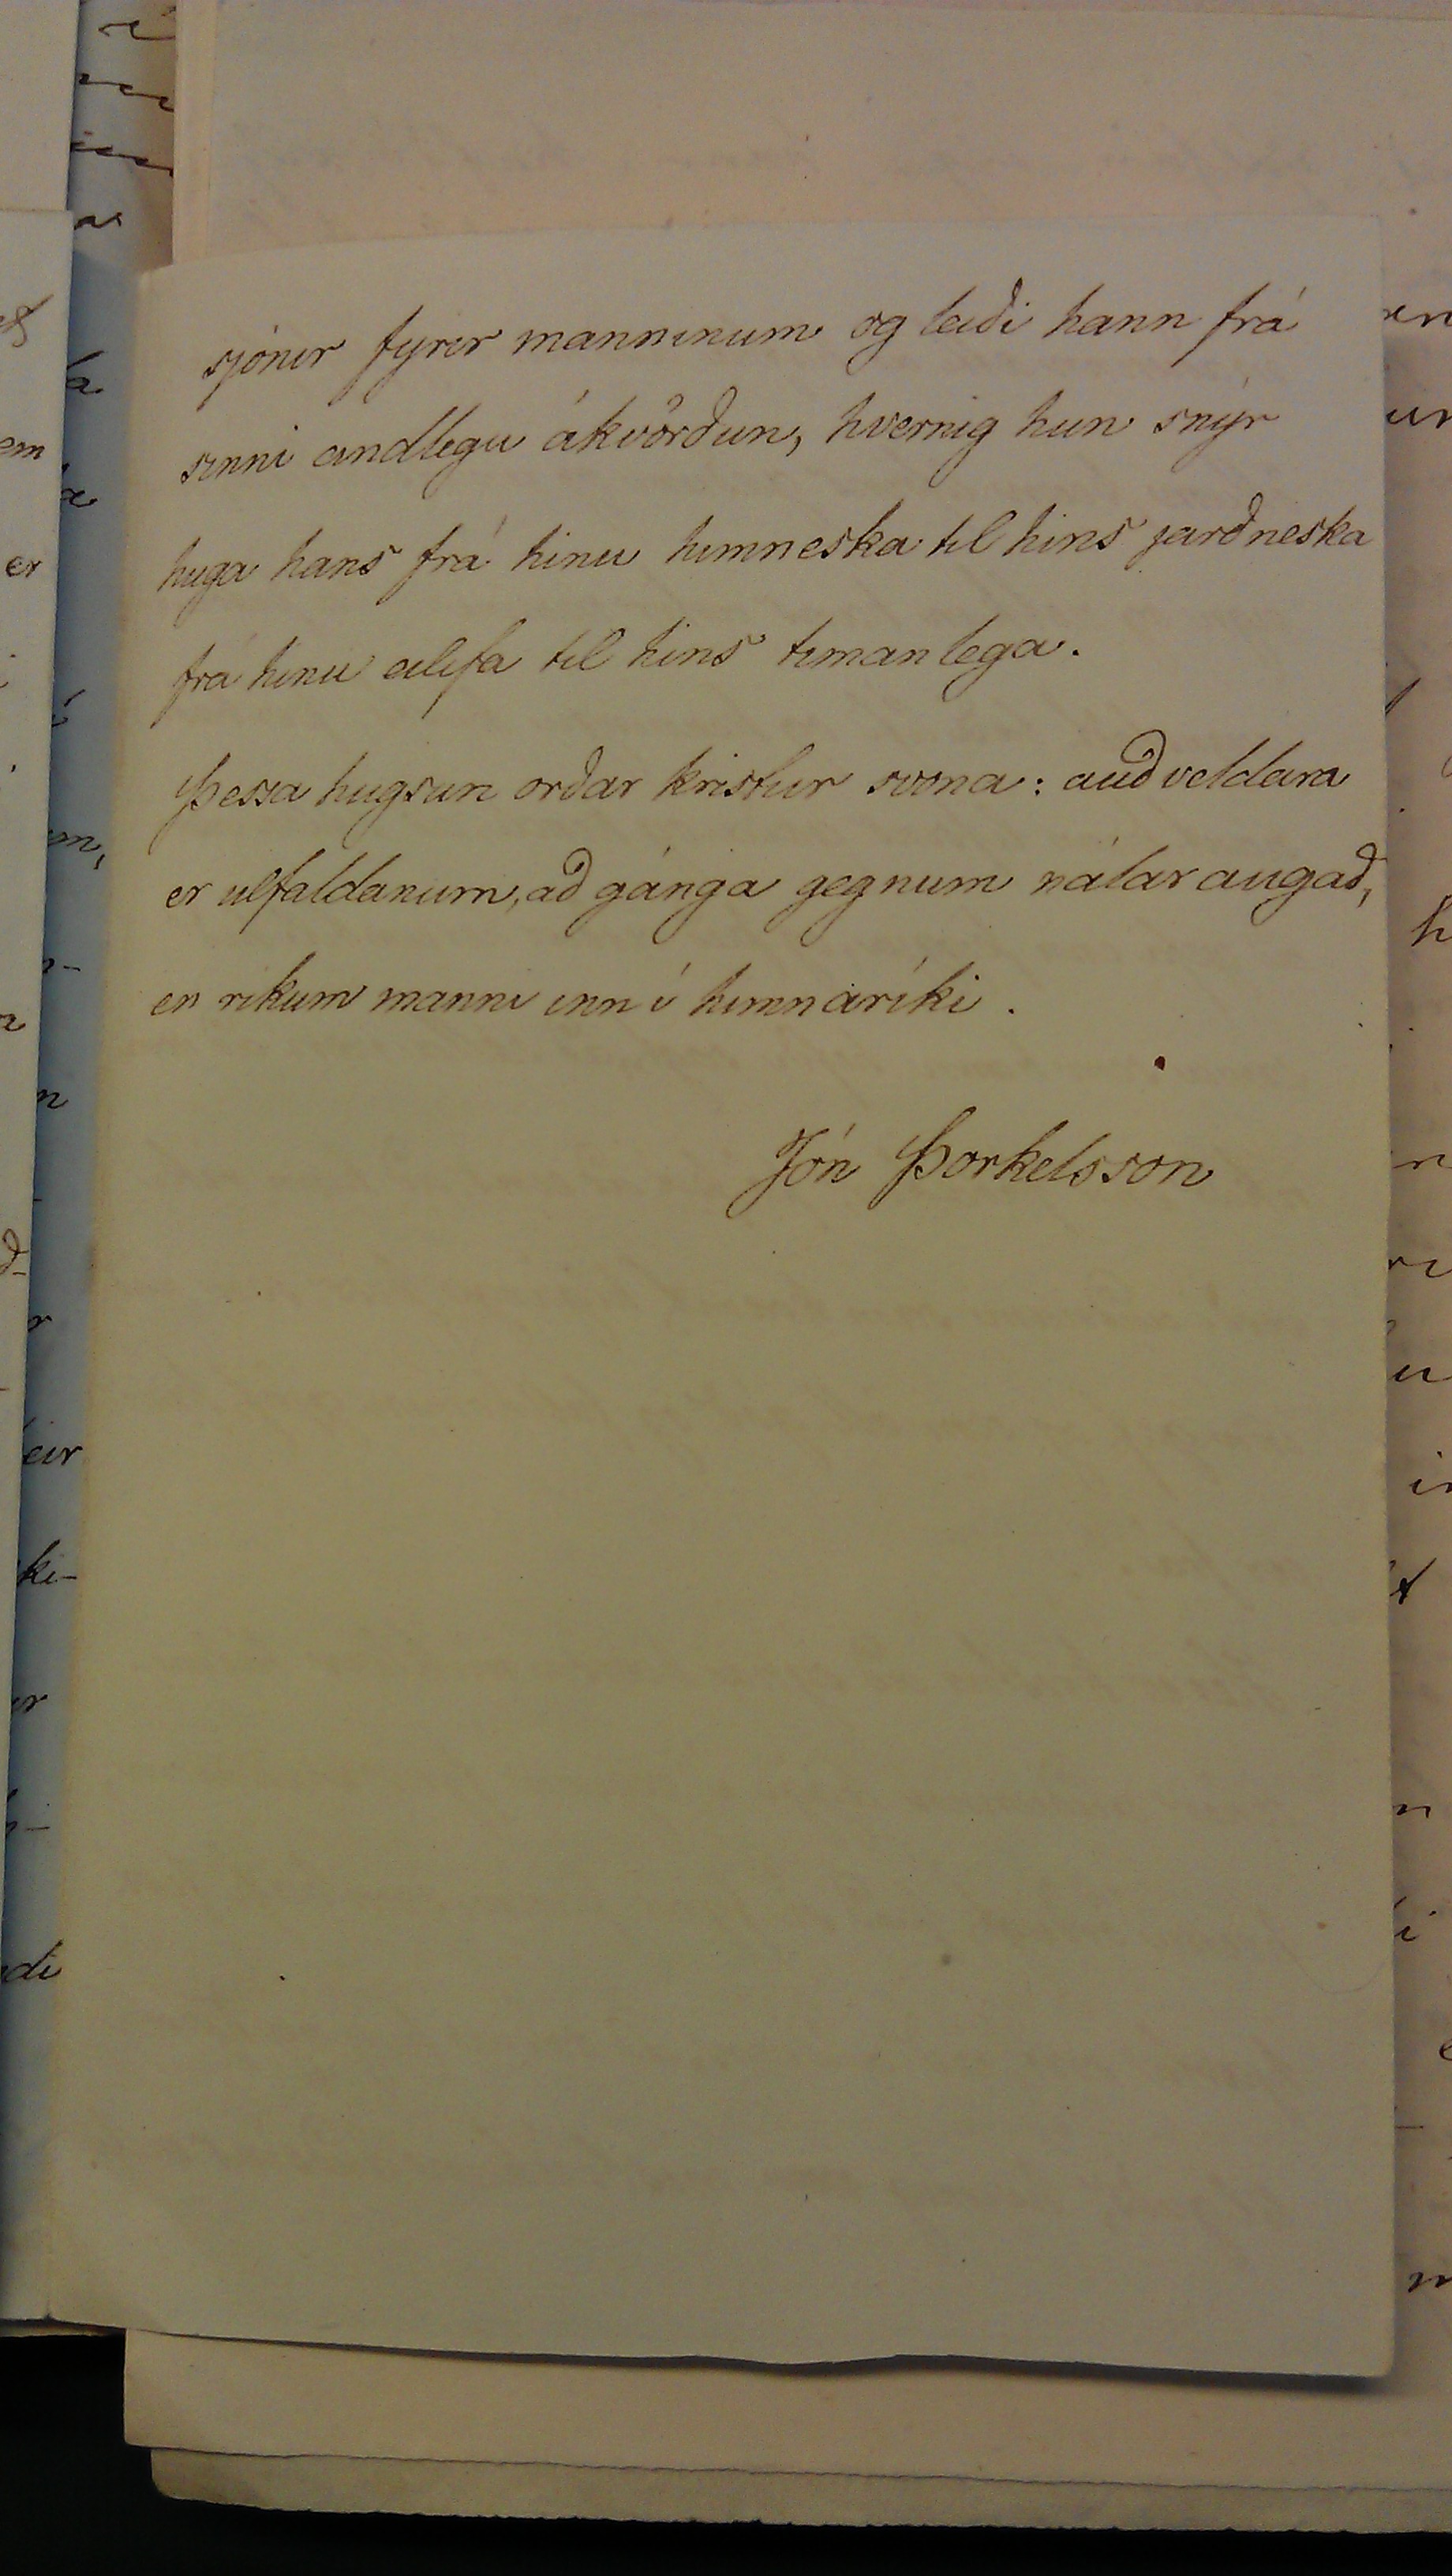 sjónir fyrir manninum og leiði hann frá
sinni andlegu ákvörðun, hvernig hun snýr
huga hans frá hinu himneska til hins jarðneska
frá hinu eilífa til hins timanlega.
Þessa hugsun orðar kristur svona: auðveldara
er ulfaldanum, að gánga gegnum nálar augað,
en rikum manni inn í himnaríki.
Jón Þorkelsson